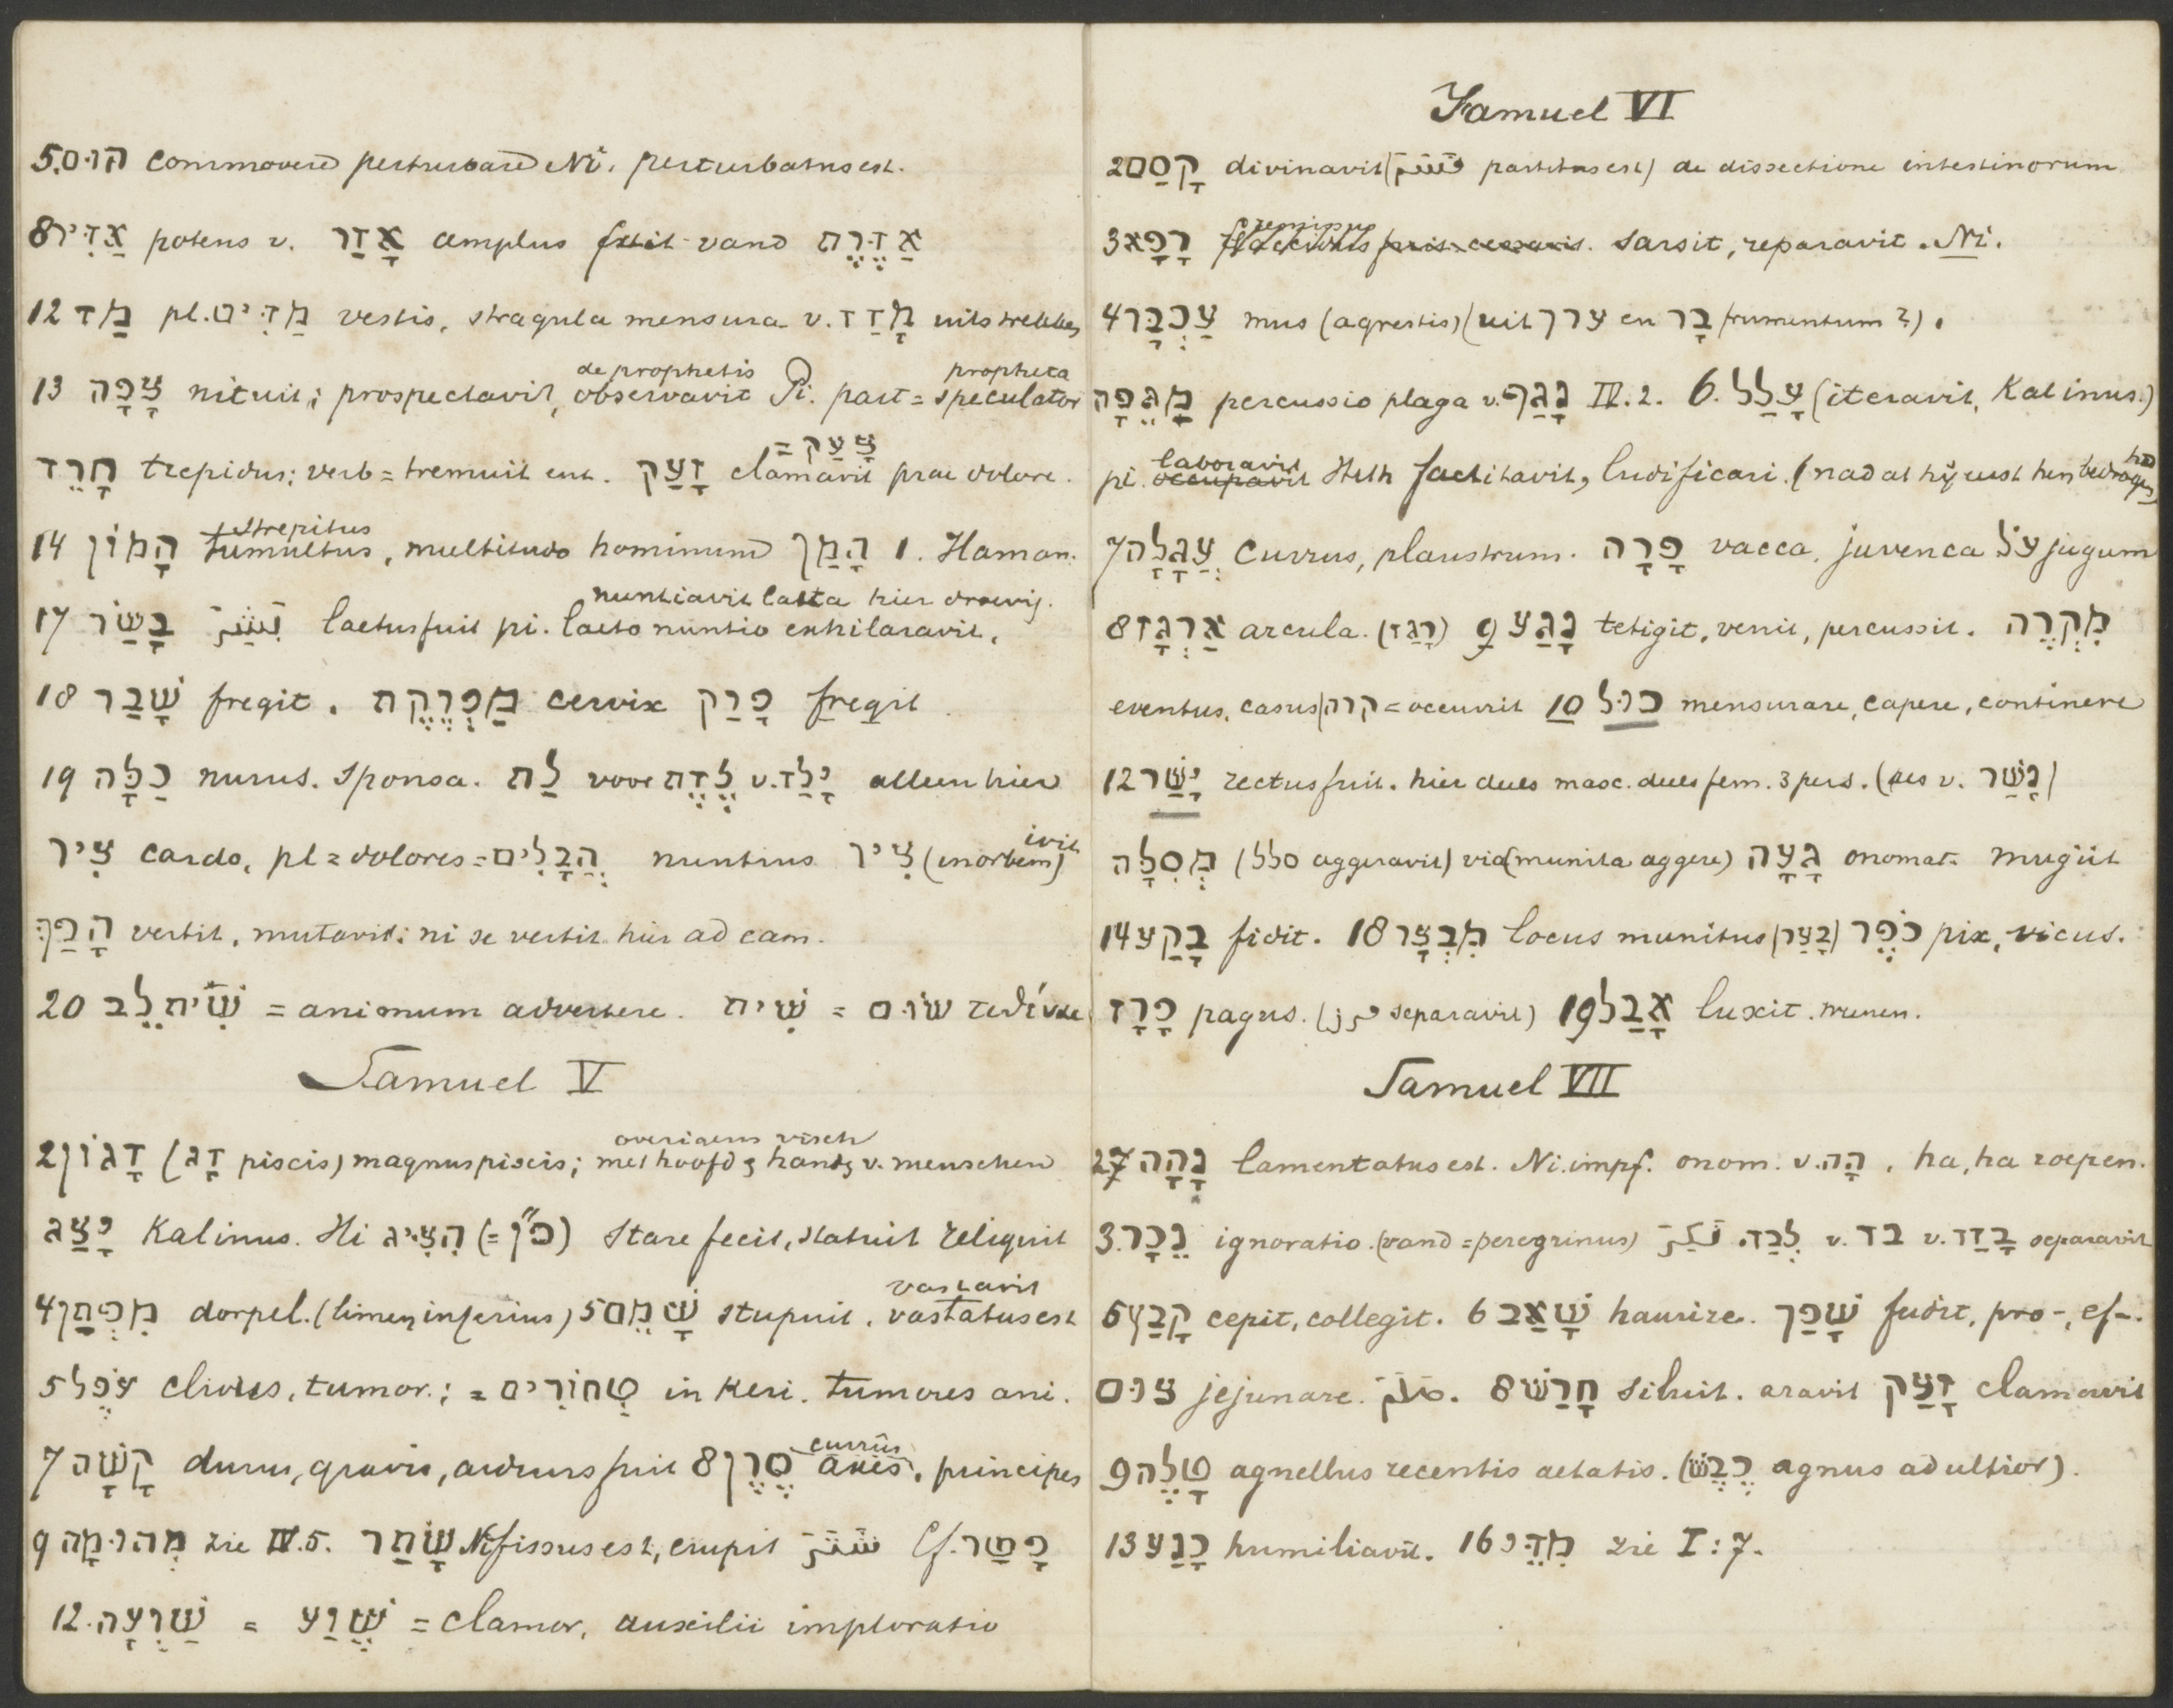 5. הוּם commovere perturbare Ni. perturbatus est.
8 אַדִּיר potens v. אָדַר amplus fuit vand אַדֶּרֶת
12 מַד pl. מַדִּים vestis, stragula mensura v. מָדַד uitstrekken
de prophetis propheta
13 צָפָה nituit; prospectavit, observavit Pi. part = speculator
צָעַק =
חָרֵד trepidus; verb = tremuit enz. זָעַק clamavit prae dolore.
strepitus
14 הָמוֹן tumultus, multitudo hominum הָמַן 1. Haman.
nuntiavit laeta hier droevig.
17 בָּשַׂר بَشَّرَ laetus fuit pi. laeto nuntio exhilaravit.
18 שָׁבַר fregit. מַפְרֶקֶת cervix פָּרַק fregit
19 כַּלָּה nurus. sponsa. לַת voor לֶדֶת v. יָלַד alleen hier
ivit
צִיר cardo, pl = dolores = הֲבָלִים nuntius צִיר (in orbem)
הָפַךְ vertit, mutavit; ni se vertit hier ad eam.
20 שִׁית לֵב = animum advertere. שִׁית = שׂוּם
Samuel V
2 דָּגוֹן (דָּג piscis) magnus piscis; met hoofd & handen v. menschen
overigens visch
יָצַג Kal inus. Hi הִצִּיג (= פ״ן) stare fecit, statuit reliquit
vastavit
4 מִפְתָּן dorpel. (limen inferius) 5 שָׁמֵם stupuit. vastatus est
5 עֹפֶל clivus, tumor.; = טְחוֹרִים in Keri. tumores ani.
curriis
7 קָשָׁה durus, gravis, arduus fuit 8 סֶרֶן axes, principes
9 מְהוּמָה zie IV.5. שָׂתַר Ni fissus est, erupit شَتَرَ Cf. פָּטַר
12. שַׁוְעָה = שֶׁוַע = clamor, auxilii imploratio
Samuel VI
2 קָסַם divinavit (قَسَمَ partitus est) de dissectione intestinorum
3 רָפָא sarsit, reparavit. Ni.
4 עַכְבָּר mus (agrestis) (uit ערך en בָּר frumentum?).
מַגֵּפָה percussio plaga v. נָגַף IV.2. 6. עָלַל (iteravit, Kal inus.)
laboravit
pi. occupavit Hith factitavit, ludificari. (nadat hij eerst hen bedrogen had)
7 עֲגָלָה currus, plaustrum. פָּרָה vacca, juvenca עֹל jugum
8 אַרְגָּז arcula. (רָגַז) 9 נָגַע tetigit, venit, percussit. מִקְרֶה
eventus, casus (קרה = occurrit 10 כּוּל mensurare, capere, continere
12 יָשַׁר rectus fuit. hier deels masc. deels fem. 3 pers. (des v. נָשַׁר)
מְסִלָּה (סלל aggeravit) via (munita aggere) גָּעָה onomat. mugiit
14 בָּקַע fidit. 18 מִבְצָר locus munitus (בָּצַר) כֹּפֶר pix, vicus.
פָּרָז pagus. (فرز separavit) 19 אָבַל luxit.
Samuel VII
2 נָהָה lamentatus est. Ni. impf. onom. v. הָהּ, ha, ha roepen.
3. נֵכָר ignoratio. (vand = peregrinus) نَكِرَ לְבַד v. בד v. בָּדַד separavit
5 קָבַץ cepit, collegit. 6 שָׁאַב haurire. שָׁפַךְ fudit, pro-, ef-.
צוּם jejunare. صَامَ. 8 חָרַשׁ siluit. aravit זָעַק clamavit
9 טָלֶה agnellus recentis aetatis. (כֶּבֶשׂ agnus adultior).
13 כָּנַע humiliavit. 16 מִדֵּי zie I:7.